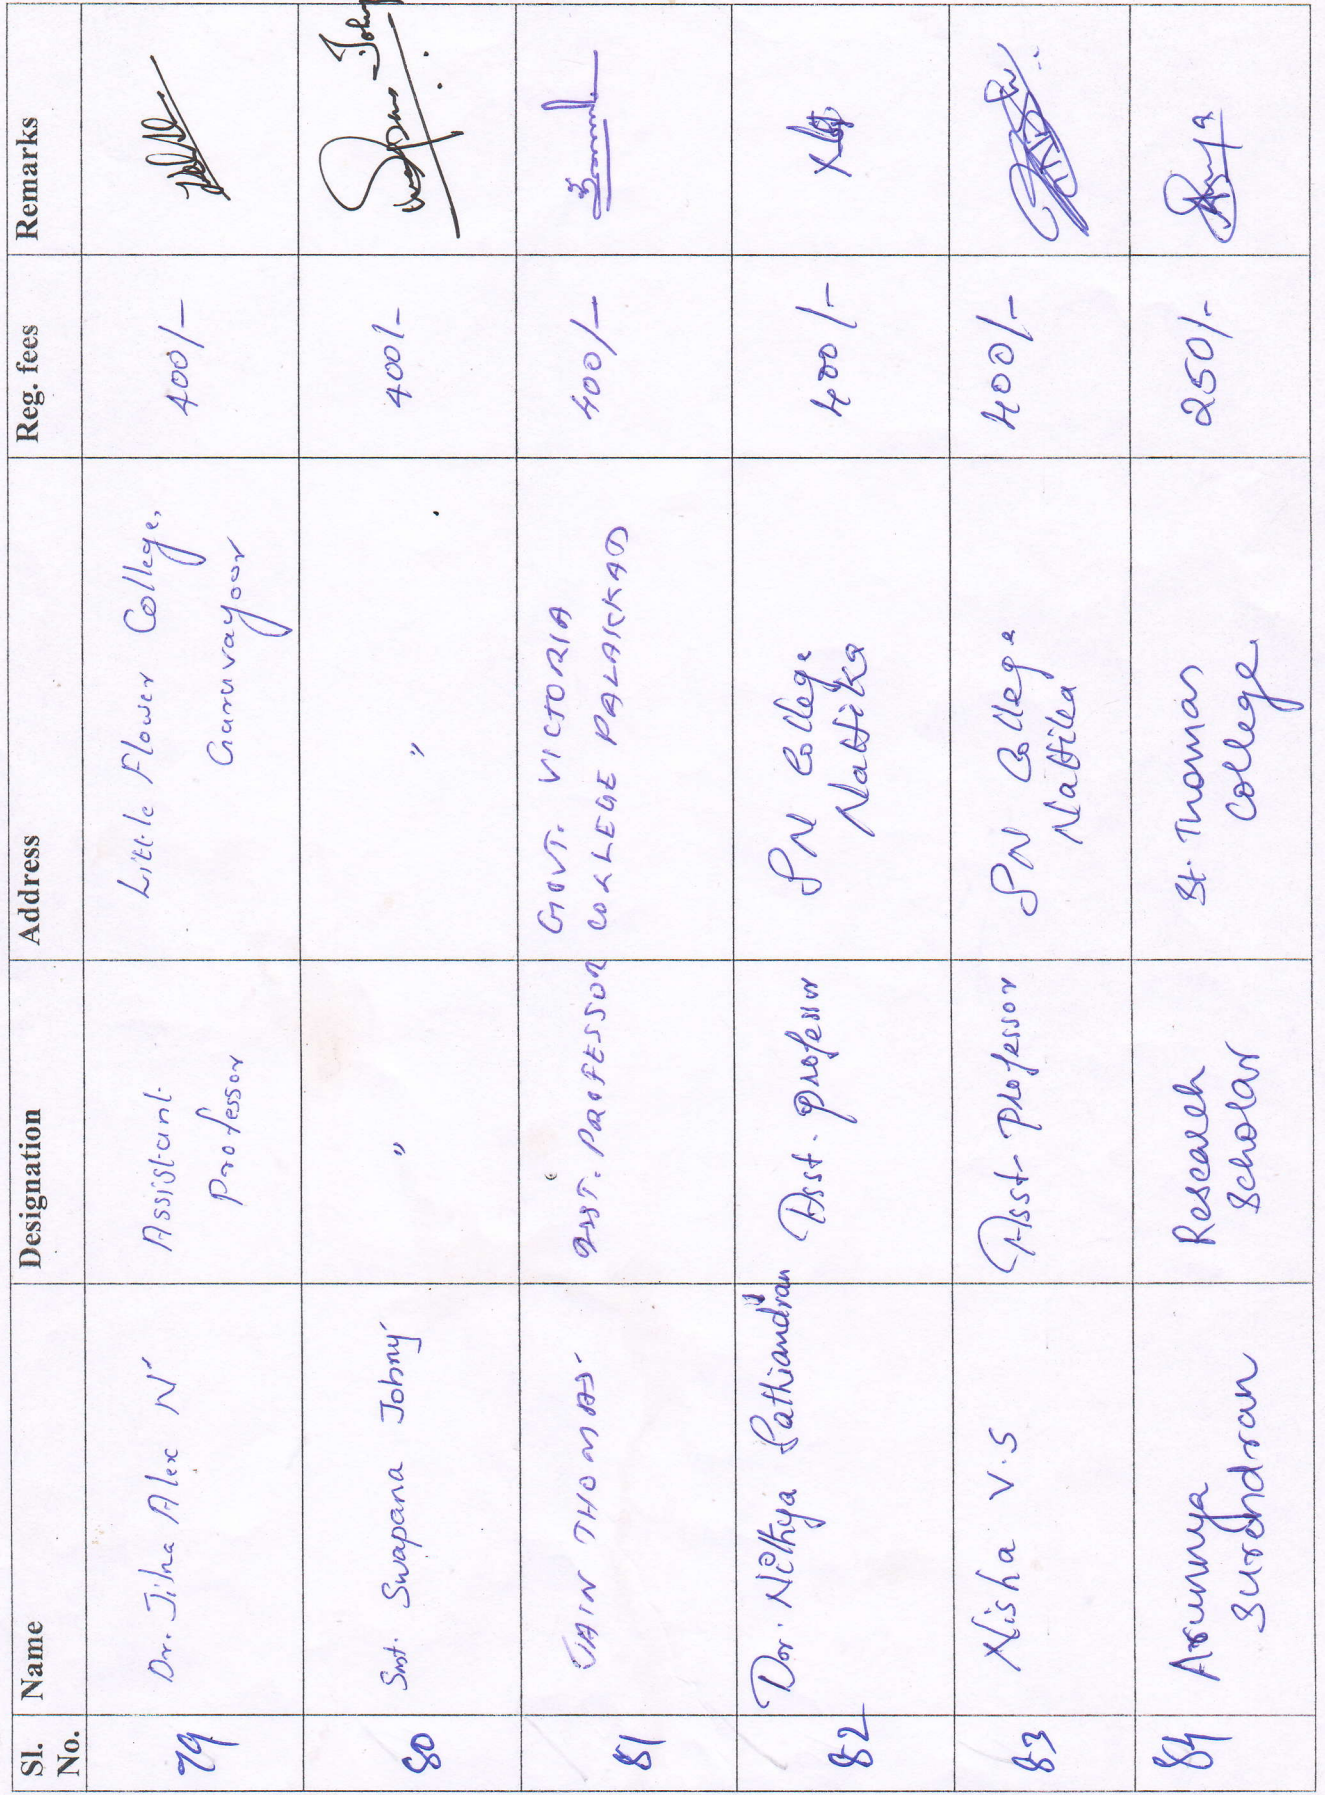 Sl. No. Name Designation Address Reg. fees Remarks
79 Dr. Jilna Alex N Assistant Professor Little Flower College, Guruvayoor 400/-
80 Smt. Swapana Johny " " 400/-
81 JAIN THOMAS ASST. PROFESSOR GOVT. VICTORIA COLLEGE PALAKKAD 400/-
82 Dr. Nithya Sathiandran Asst. professor SN College Nattika 400/-
83 Nisha V.S Asst. Professor SN College Nattika 400/-
84 Arunnya Surendran Research Scholar St. Thomas College 250/-